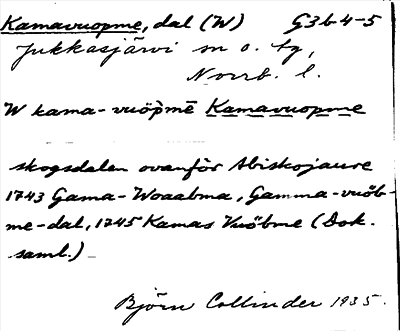 Kamavuopme, dal (W) G3b4-5
Jukkasjärvi sn o. tg,
Norrb. l.
W kama-vuöp̀mē Kamavuopme
skogsdalen ovanför Abiskojaure
1743 Gama-Woaabma, Gamma-vuöb-
me-dal, 1745 Kamas Vuöbme (Dok.
saml.)
Björn Collinder 1935.